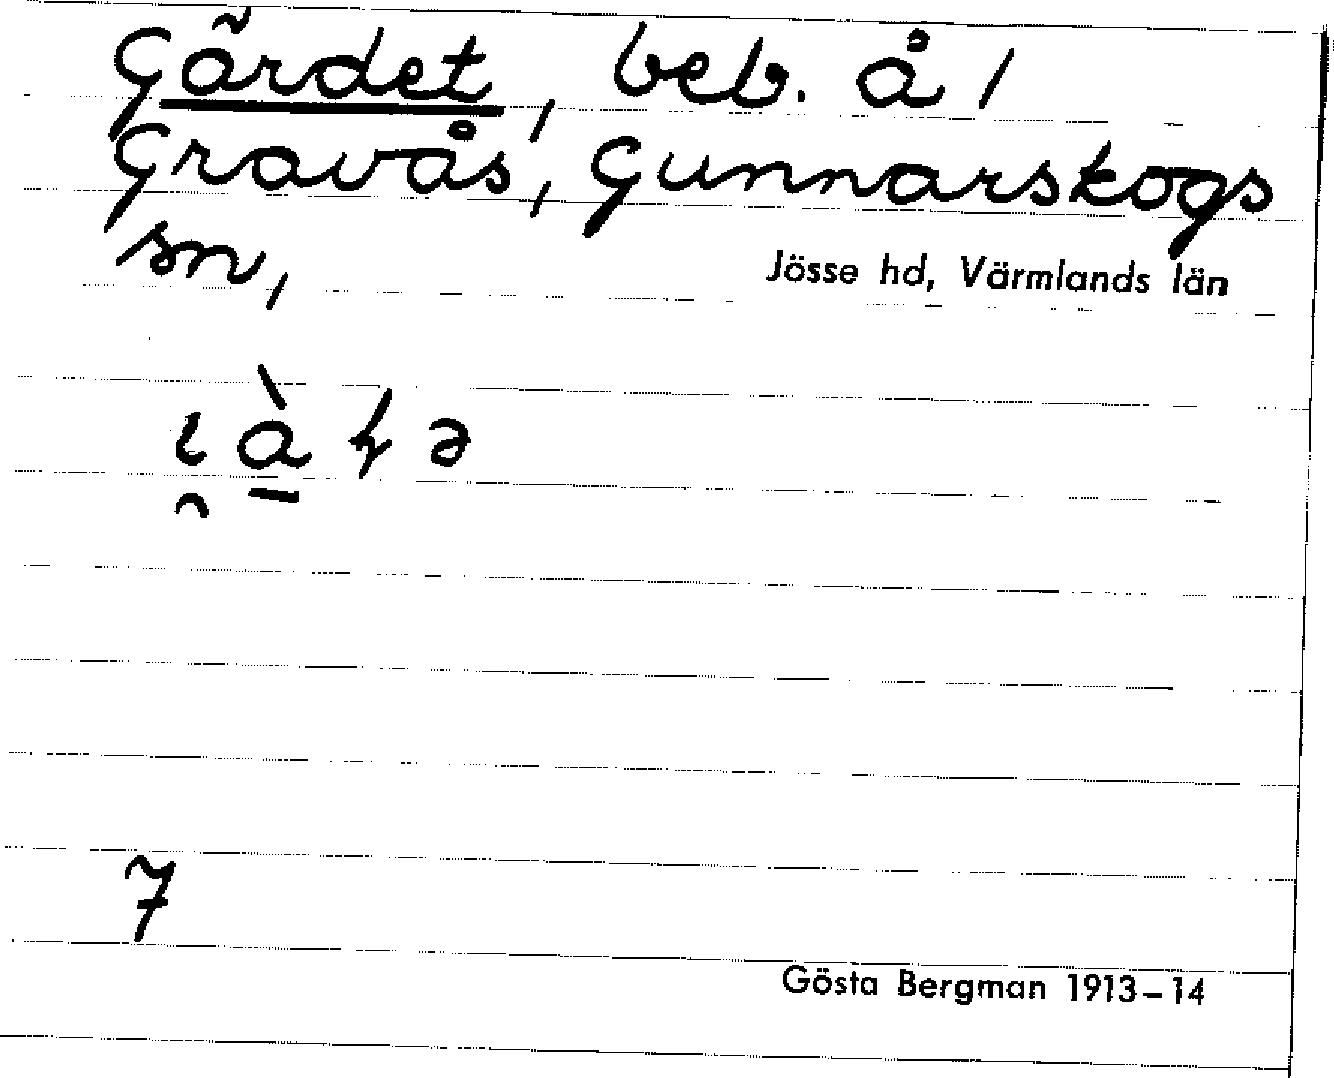 Gärdet, beb. å /
Gravås, Gunnarskogs
sn,
Jösse hd, Värmlands län
7
Gösta Bergman 1913–14